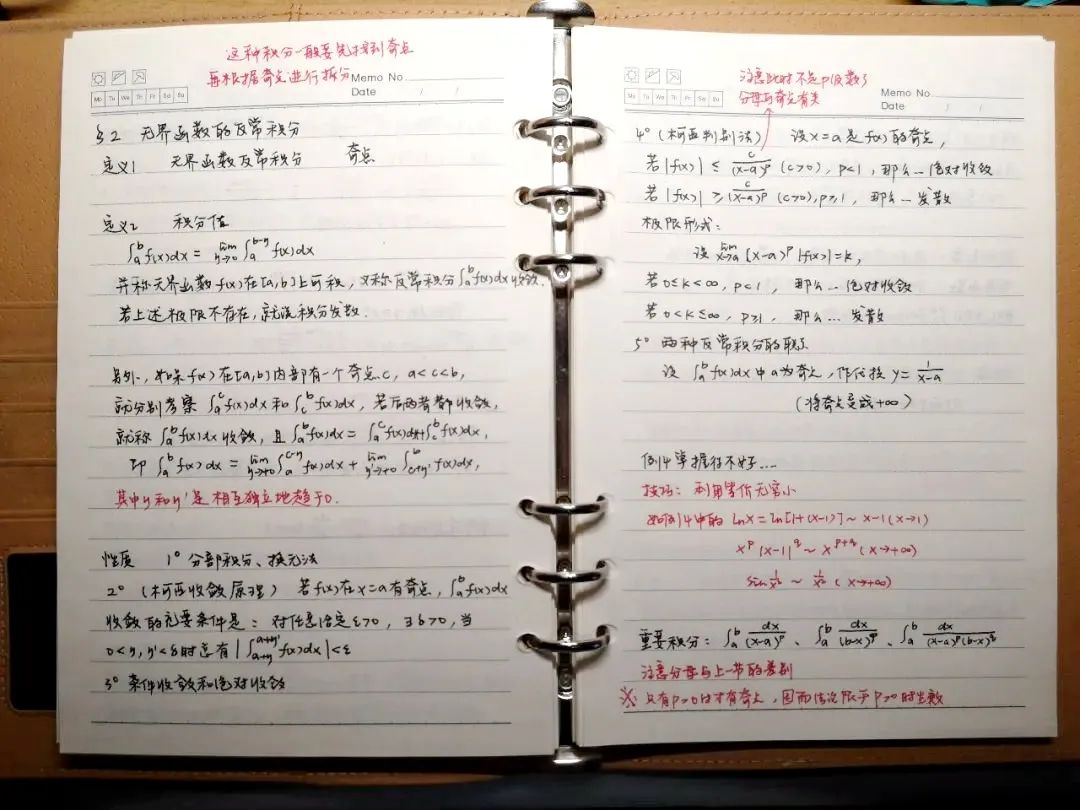 这种积分一般要先找到奇点
再根据奇点进行拆分
Memo No.
Date / /
Mo Tu We Th Fr Sa Su
§2 无界函数的反常积分
定义1 无界函数反常积分 奇点
定义2 积分值
∫_a^b f(x)dx = lim_{η→0} ∫_a^{b-η} f(x)dx
并称无界函数f(x)在[a,b]上可积, 又称反常积分∫_a^b f(x)dx收敛.
若上述极限不存在, 就说积分发散.
另外, 如果f(x)在[a,b]内部有一个奇点c, a<c<b,
就分别考察 ∫_a^c f(x)dx 和 ∫_c^b f(x)dx, 若后两者都收敛,
就称 ∫_a^b f(x)dx 收敛, 且 ∫_a^b f(x)dx = ∫_a^c f(x)dx+∫_c^b f(x)dx,
即 ∫_a^b f(x)dx = lim_{η→+0} ∫_a^{c-η} f(x)dx + lim_{η'→+0} ∫_{c+η'}^b f(x)dx,
其中η和η'是相互独立地趋于0.
性质 1° 分部积分、换元法
2° (柯西收敛原理) 若f(x)在x=a有奇点, ∫_a^b f(x)dx
收敛的充要条件是: 对任意给定ε>0, ∃δ>0, 当
0<η,η'<δ时总有|∫_{a+η}^{a+η'} f(x)dx|<ε
3° 条件收敛和绝对收敛
注意此时不是p级数
分母与奇点有关
Memo No.
Date / /
Mo Tu We Th Fr Sa Su
4° (柯西判别法) 设x=a是f(x)的奇点,
若|f(x)| ≤ c/(x-a)^p (c>0), p<1, 那么…绝对收敛
若|f(x)| ≥ c/(x-a)^p (c>0), p≥1, 那么…发散
极限形式:
设 lim_{x→a} (x-a)^p |f(x)|=k,
若0≤k<∞, p<1, 那么…绝对收敛
若0<k≤∞, p≥1, 那么…发散
5° 两种反常积分的联系
设 ∫_a^b f(x)dx中a为奇点, 作代换 y= 1/(x-a)
(将奇点变成+∞)
例4掌握得不好…
技巧: 利用等价无穷小
如例4中的 lnx=ln[1+(x-1)]~x-1(x→1)
x^p|x-1|^q ~ x^{p+q} (x→+∞)
sin 1/x² ~ 1/x² (x→+∞)
重要积分: ∫_a^b dx/(x-a)^p、∫_a^b dx/(b-x)^p、∫_a^b dx/((x-a)^p(b-x)^q)
注意分母与上一节的差别
※ 只有p>0时才有奇点, 因而讨论限于p>0时